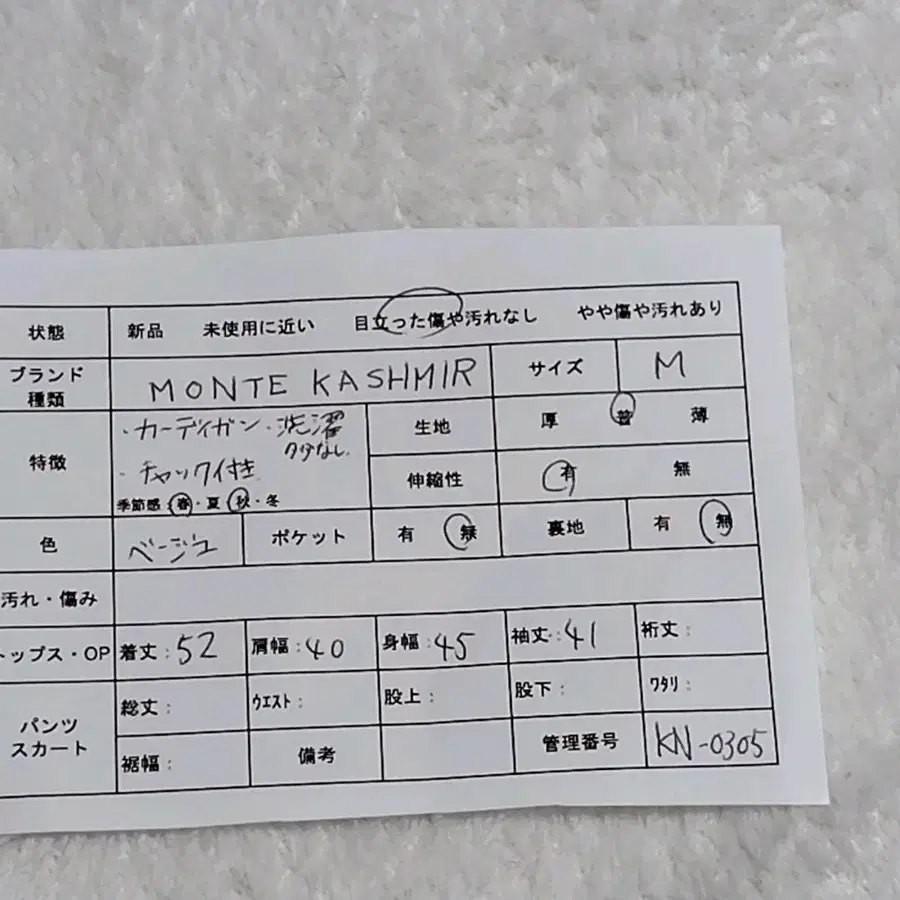 状態 新品 未使用に近い 目立った傷や汚れなし やや傷や汚れあり
ブランド
種類
MONTE KASHMIR サイズ M
特徴
・カーディガン・洗濯
タグなし
・チャック付き
季節感 春・夏・秋・冬
生地 厚 普 薄
伸縮性 有 無
色 ベージュ ポケット 有 無 裏地 有 無
汚れ・傷み
トップス・OP 着丈:52 肩幅:40 身幅:45 袖丈:41 裄丈:
パンツ
スカート
総丈: ウエスト: 股上: 股下: ワタリ:
裾幅: 備考 管理番号 KN-0305